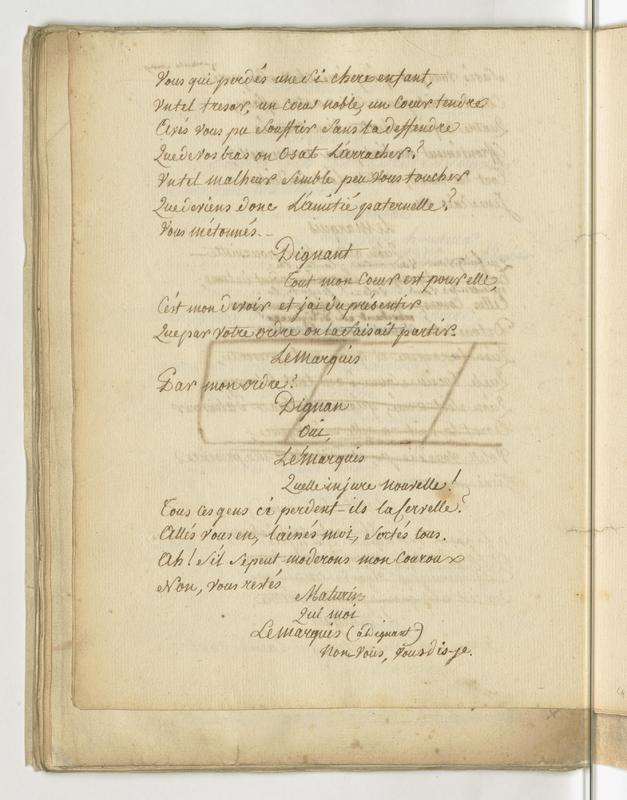 Vous qui perdés une Si chere enfant,
Un tel tresor, un cœur noble, un Coeur tendre
Avés vous pu Souffrir Sans la deffendre
Que de vos bras on Osat L'arracher?
Un tel malheur Semble peu Vous toucher
Que deviens donc L'amitié paternelle?
Vous m'étonnés. _
Dignant
tout mon Coeur est pour elle,
C'est mon devoir et j'ai du présentir
Que par Votre ordre on la faisait partir.
Le Marquis
Par mon ordre?
Dignan
Oui,
Le Marquis
Quelle injure Nouvelle!
Tous ces gens ci perdent-ils la Cervelle?
Allés Vous en, laissés moi, Sortés tous.
Ah! S'il Se peut moderons mon Couroux
Non, Vous restés
Maturin
Qui moi
Le marquis (à Dignant)
Non Vous, Vous dis-je.